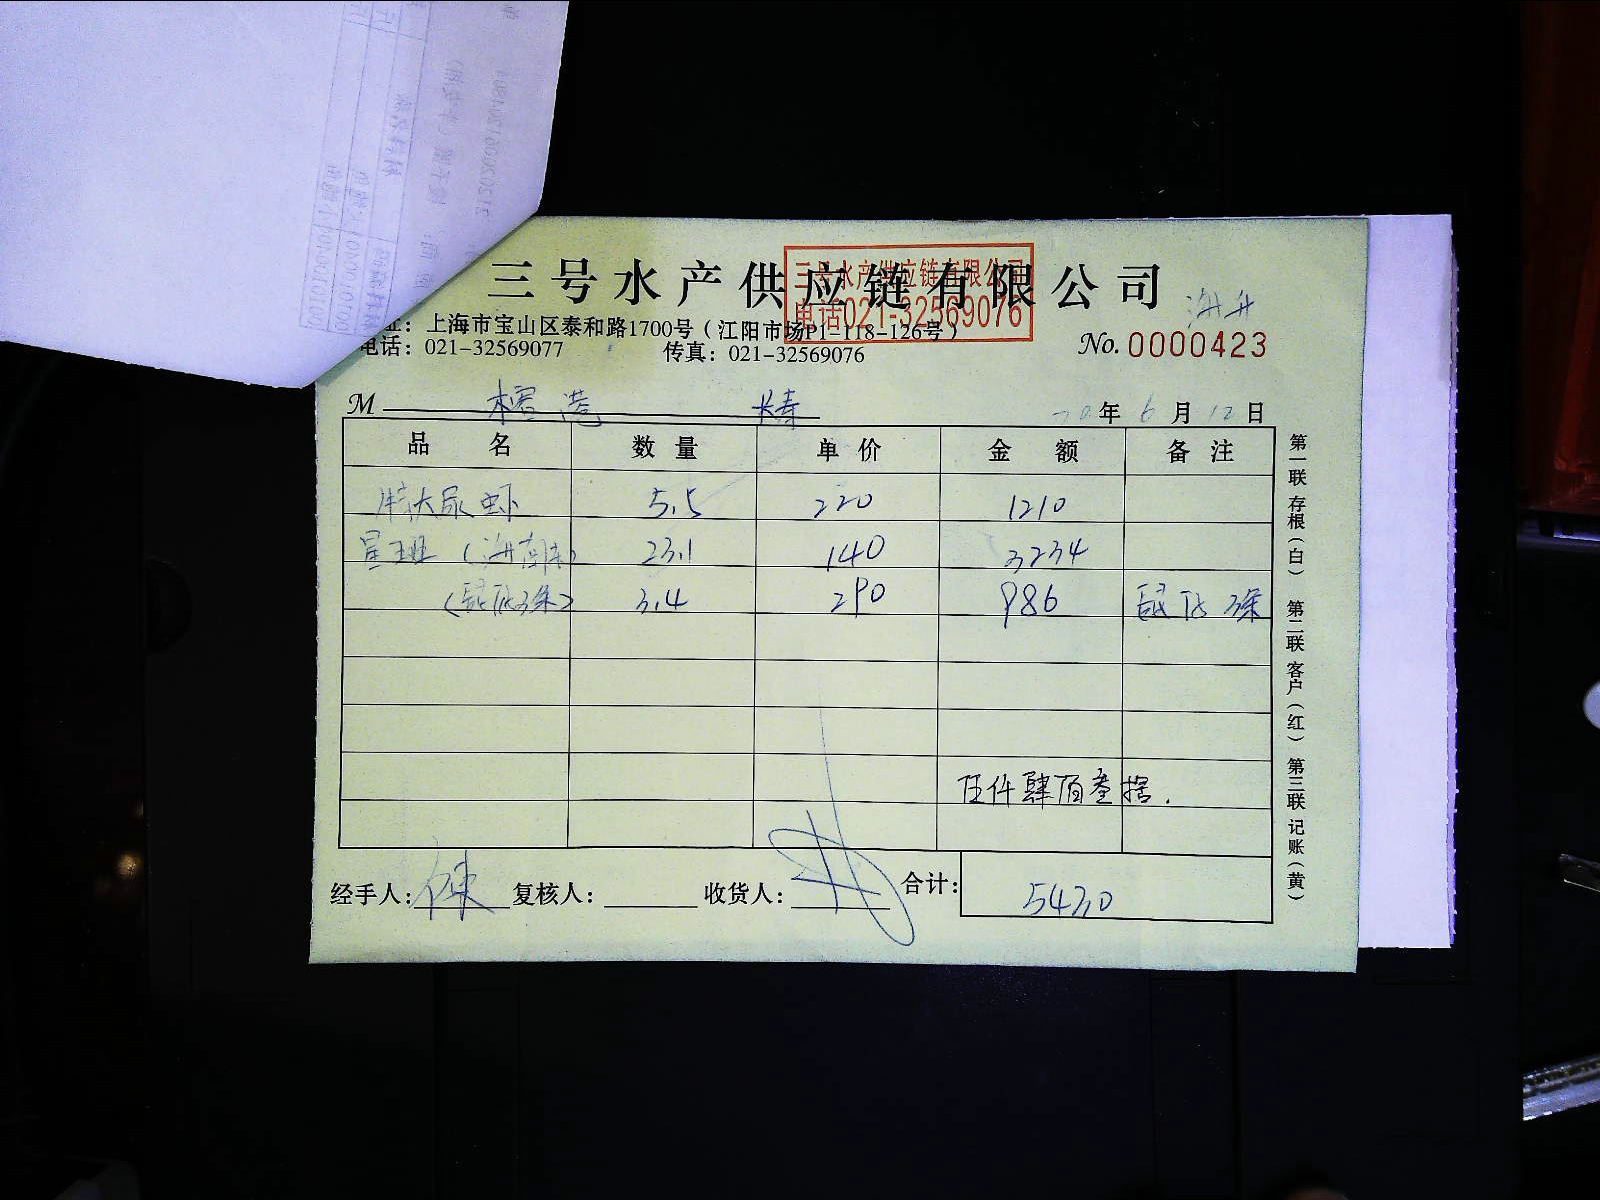 三号水产供应链有限公司
三号水产供应链有限公司
电话021-32569076
址：上海市宝山区泰和路1700号（江阳市场P1-118-126号）
电话：021-32569077 传真：021-32569076
No. 0000423
M 榕港 长寿
20年6月12日
品名 数量 单价 金额 备注
特大尿虾 5.5 220 1210
星班（海南 23.1 140 3234
3条） 3.4 290 986 3条
伍仟肆佰叁拾.
经手人： 复核人： 收货人： 合计： 5430
第一联 存根（白） 第二联 客户（红） 第三联 记账（黄）